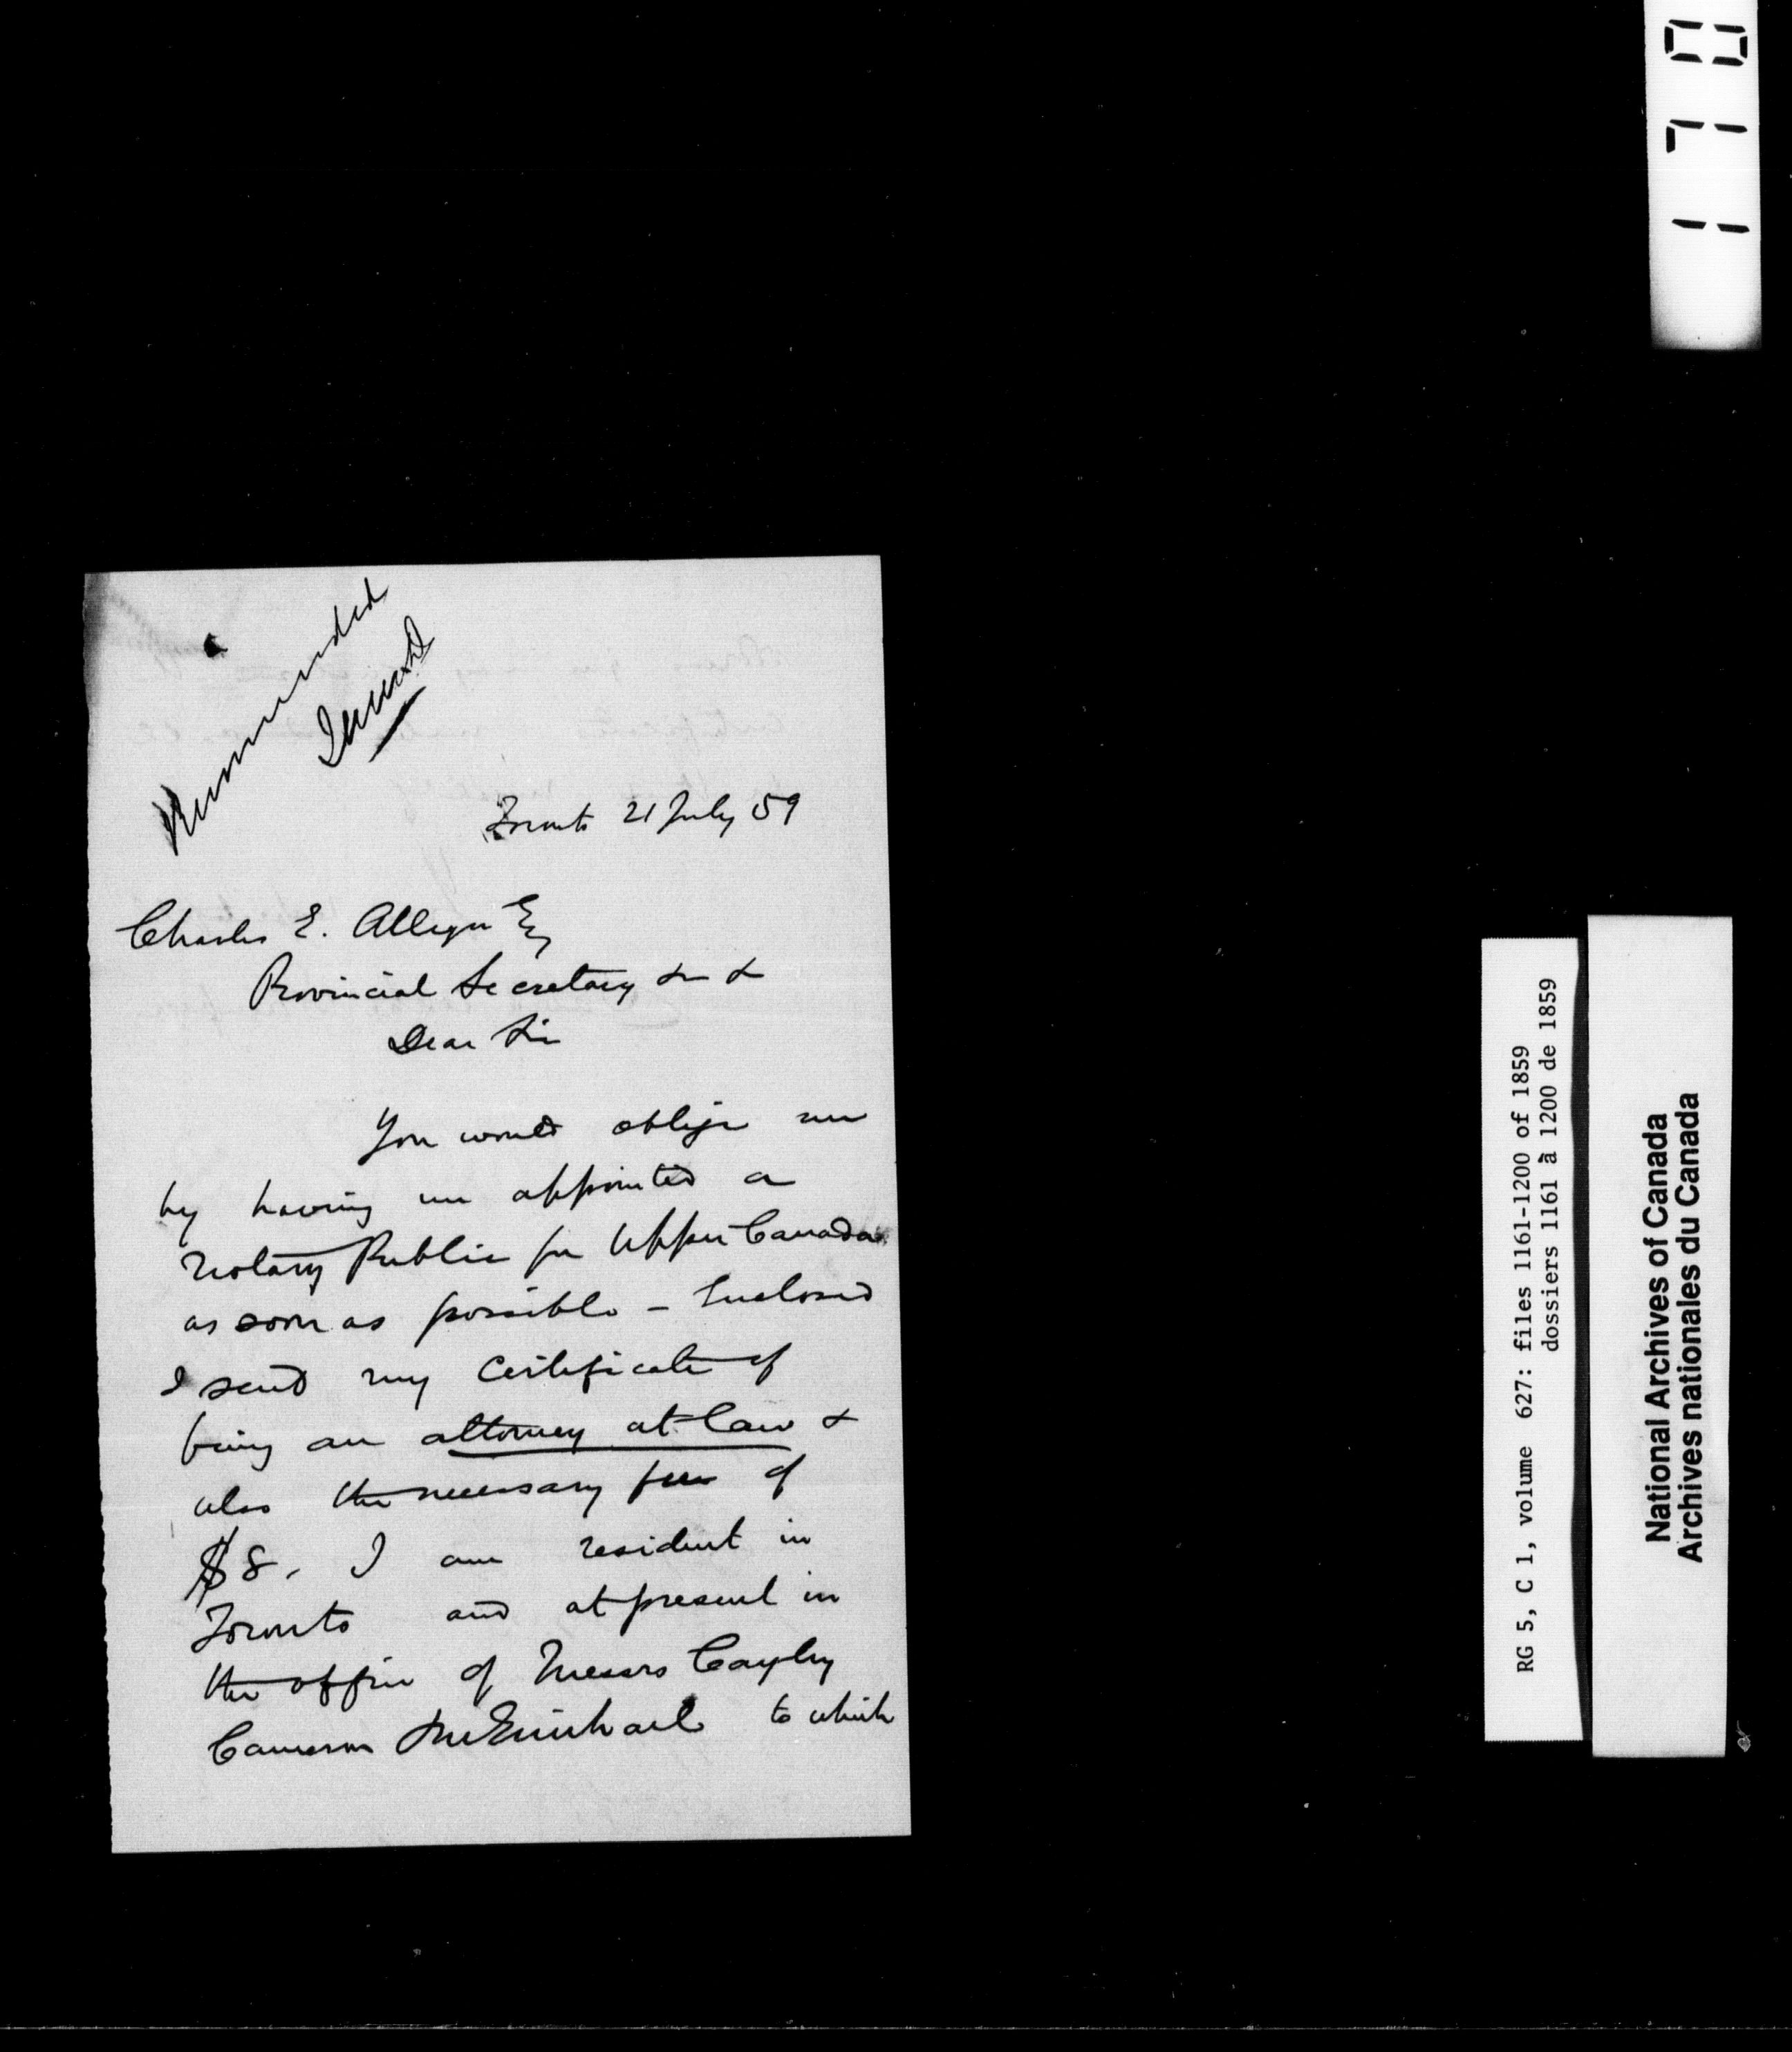 1170
Recommended
Toronto 21 July 59
Charles E. Alleyn Esq
Provincial Secretary &c &
Dear Sir
You would oblige me
by having me appointed a
Notary Public for Upper Canada
as soon as possible - Enclosed
I send my Certificate of
being an attorney at law &
also the necessary fee of
$8. I am resident in
Toronto and at present in
the office of Messrs Cayley
Cameron & McMichael to which
RG 5, C 1, volume 627: files 1161-1200 of 1859
dossiers 1161 à 1200 de 1859
National Archives of Canada
Archives nationales du Canada